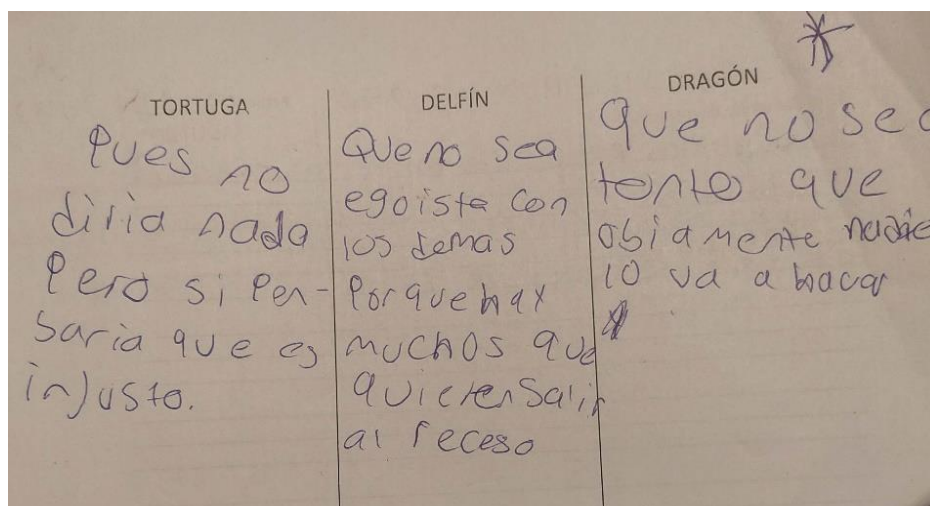 TORTUGA
Pues no
diria nada
Pero si Pen-
saria que es
injusto.
DELFÍN
Que no sea
egoista con
los demas
Porque hay
muchos que
quieren Salir
al receso
DRAGÓN
que no sea
tonto que
obiamente nadie
lo va a hacer